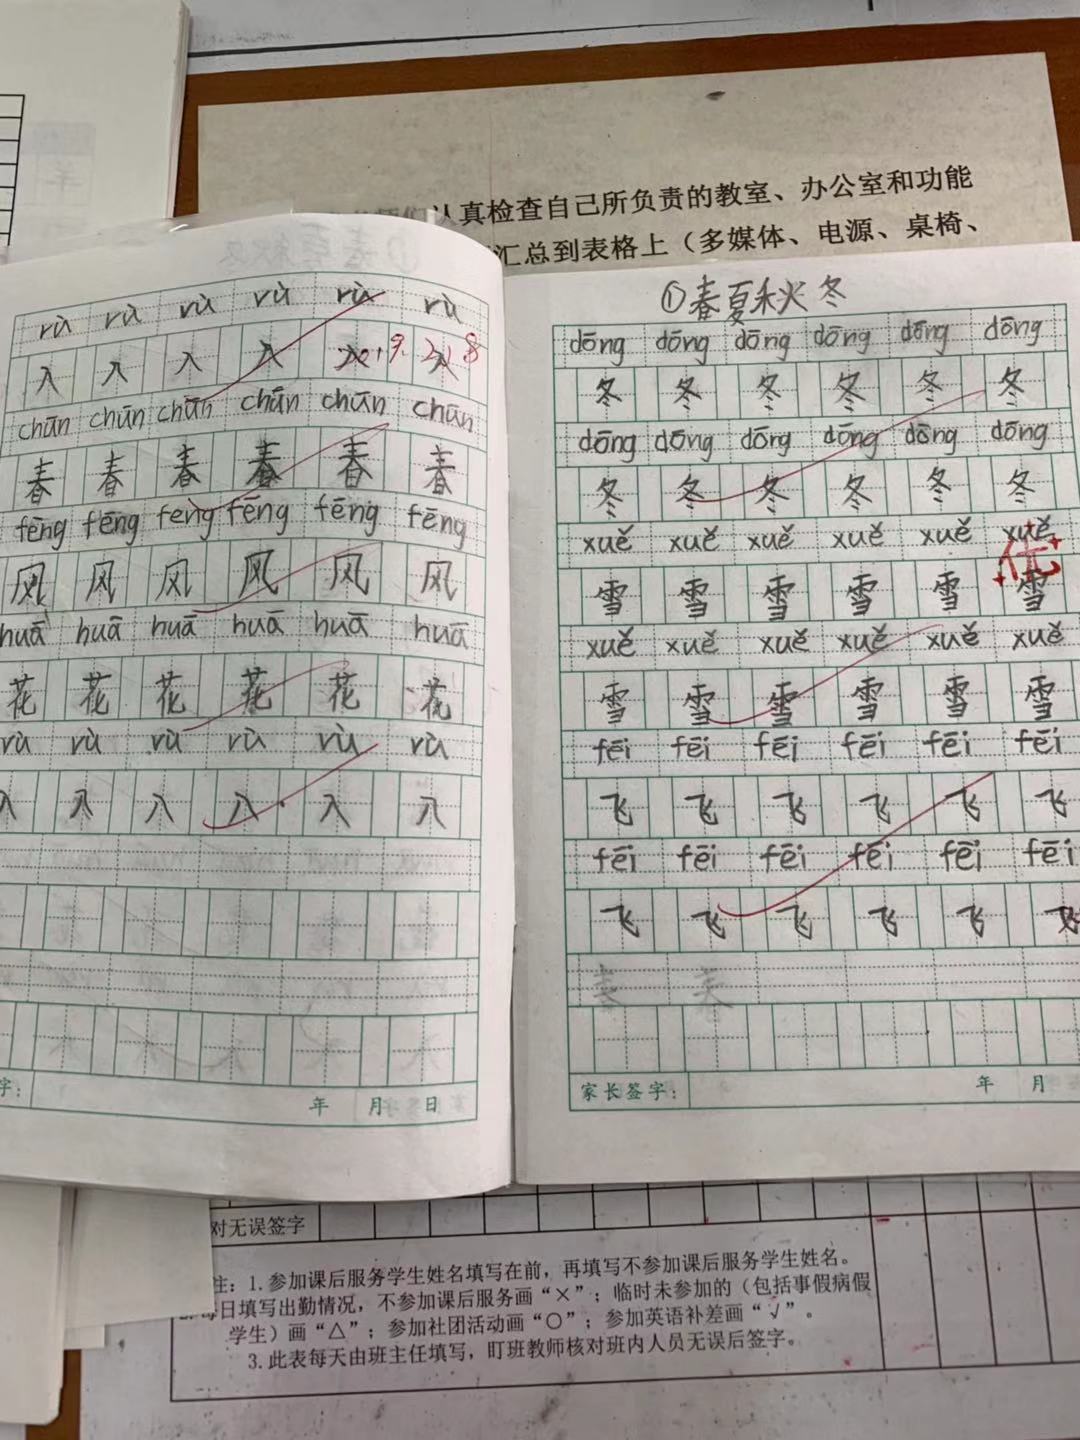 们认真检查自己所负责的教室、办公室和功能
汇总到表格上（多媒体、电源、桌椅、
rù rù rù rù rù rù
入 入 入 入 入 入
chūn chūn chūn chūn chūn chūn
春 春 春 春 春 春
fēng fēng fēng fēng fēng fēng
风 风 风 风 风 风
huā huā huā huā huā huā
花 花 花 花 花 花
rù rù rù rù rù rù
入 入 入 入 入 入
字：
年 月 日
①春夏秋冬
dōng dōng dōng dōng dōng dōng
冬 冬 冬 冬 冬 冬
dōng dōng dōng dōng dōng dōng
冬 冬 冬 冬 冬 冬
xuě xuě xuě xuě xuě xuě
优
雪 雪 雪 雪 雪 雪
xuě xuě xuě xuě xuě xuě
雪 雪 雪 雪 雪 雪
fēi fēi fēi fēi fēi fēi
飞 飞 飞 飞 飞 飞
fēi fēi fēi fēi fēi fēi
飞 飞 飞 飞 飞 飞
春 春
家长签字：
年 月
对无误签字
注：1.参加课后服务学生姓名填写在前，再填写不参加课后服务学生姓名。
每日填写出勤情况，不参加课后服务画“×”；临时未参加的（包括事假病假
学生）画“△”；参加社团活动画“○”；参加英语补差画“√”。
3.此表每天由班主任填写，盯班教师核对班内人员无误后签字。